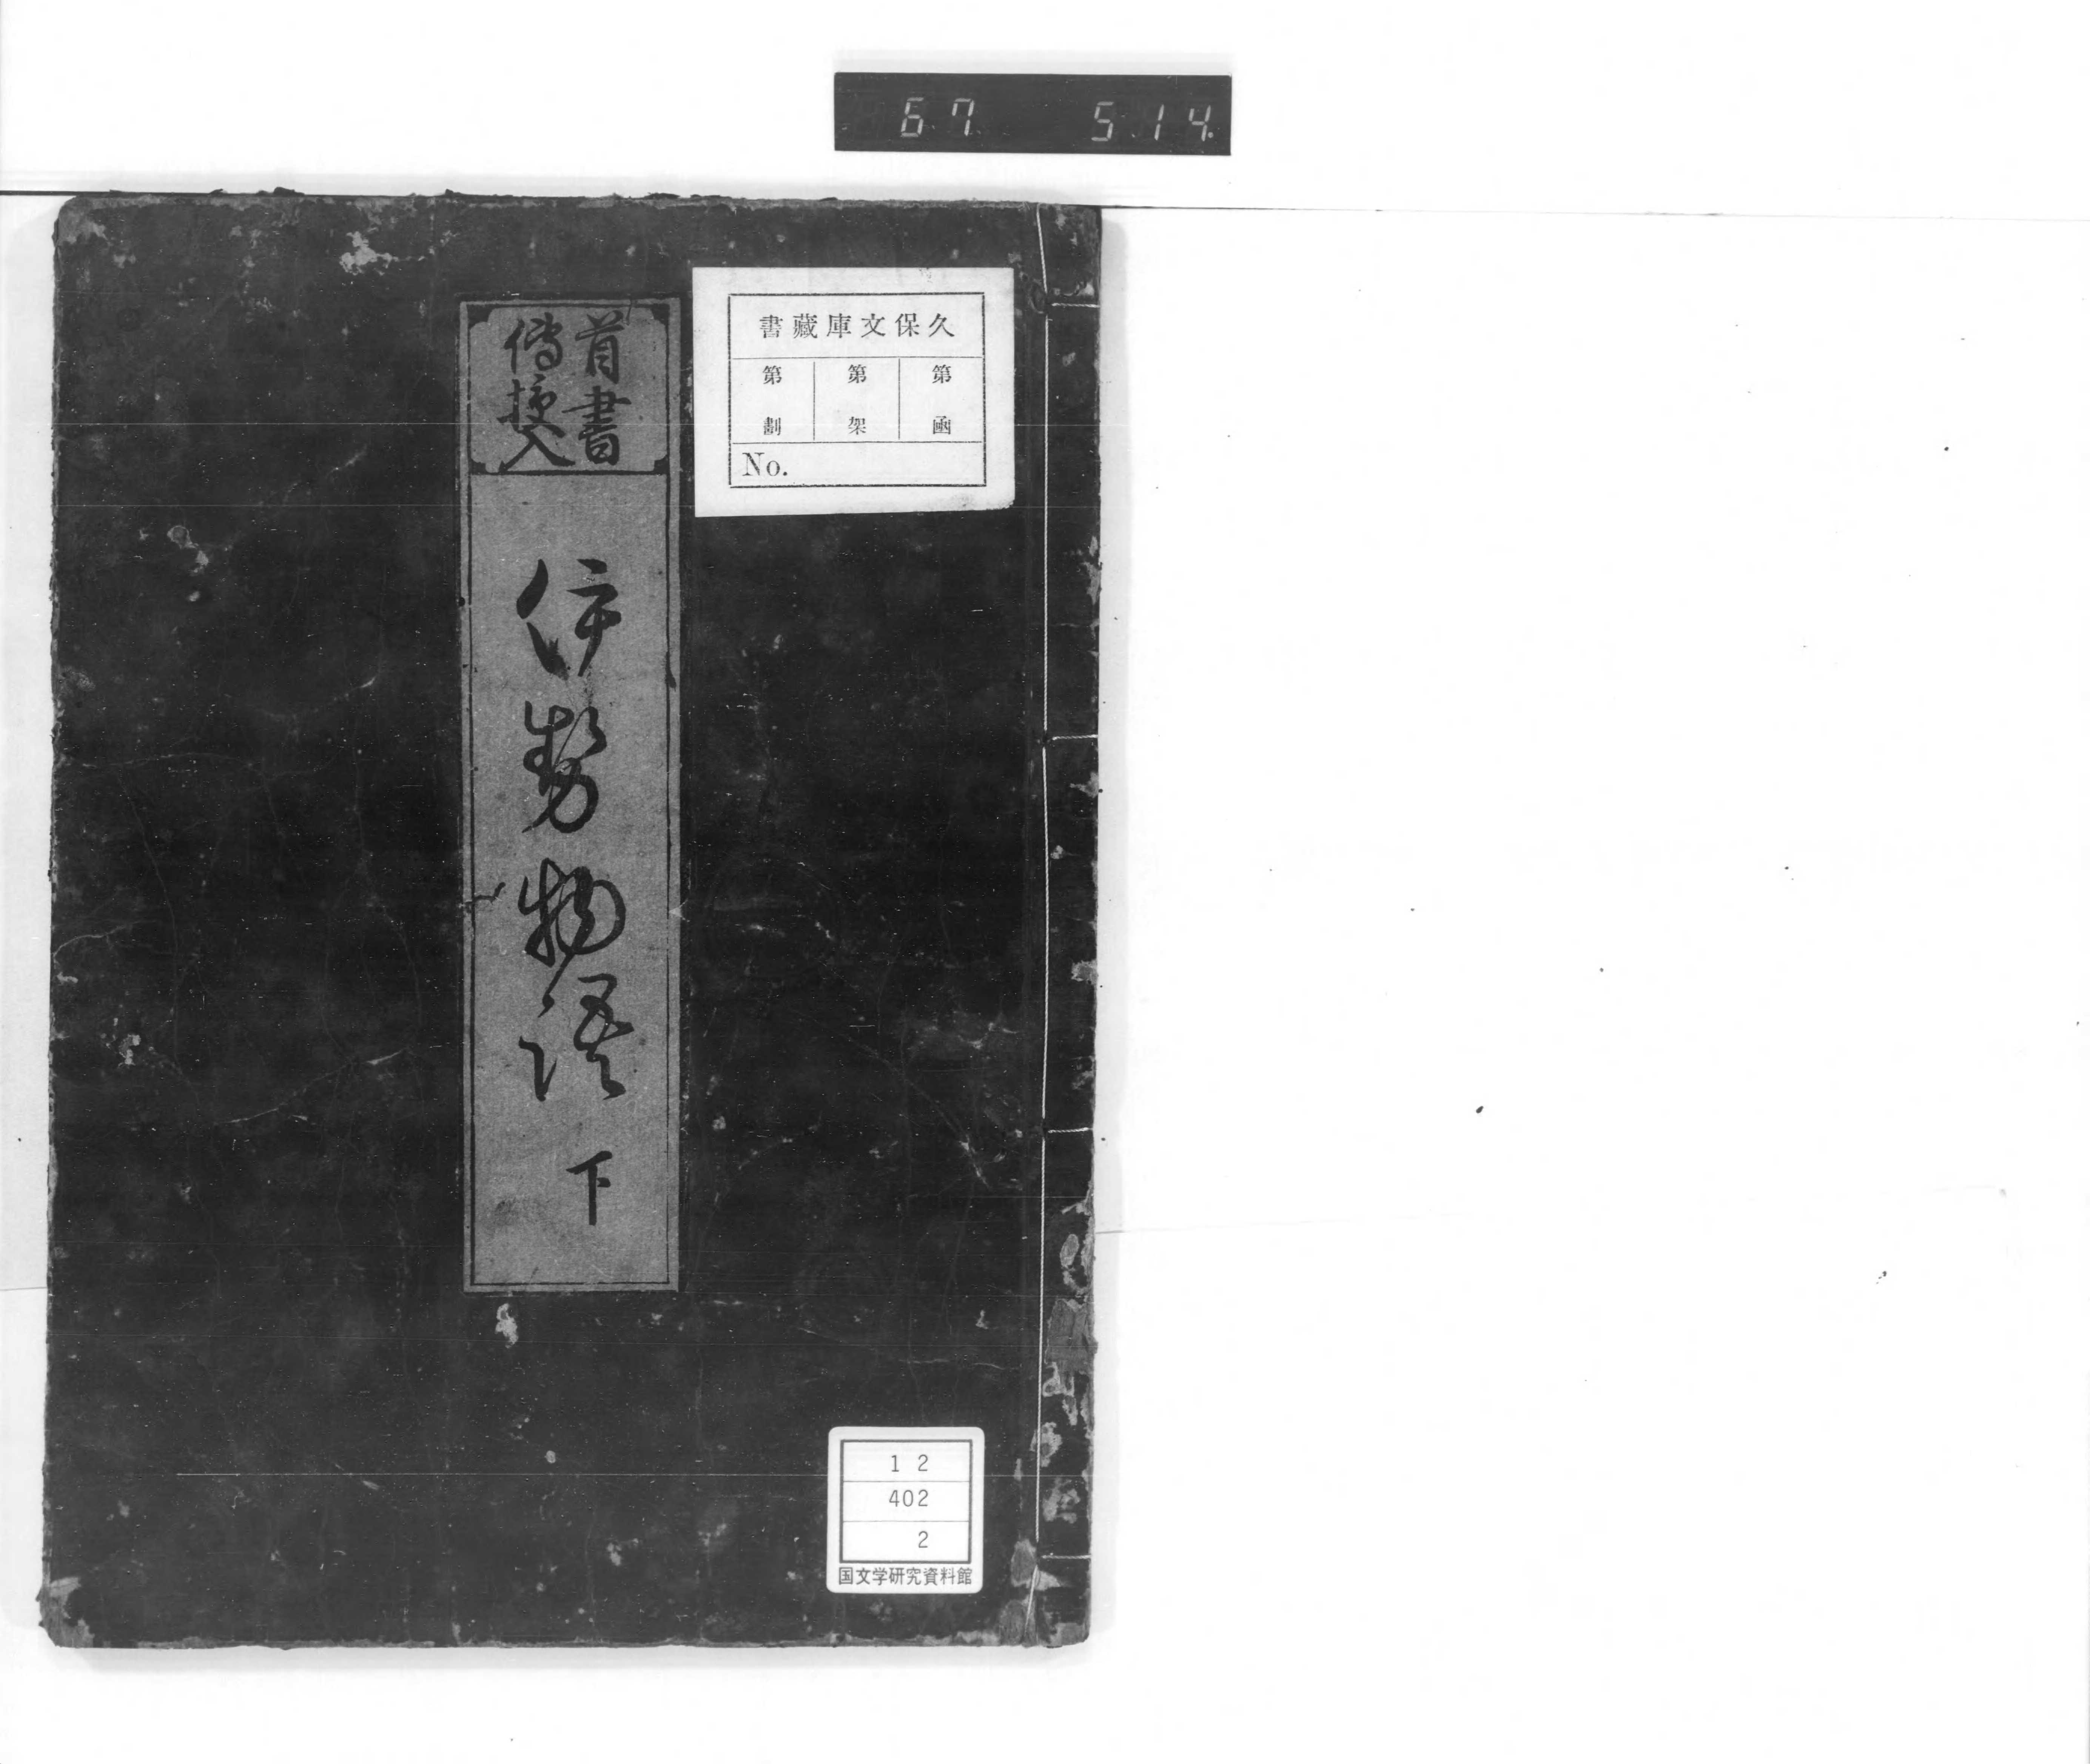 67 5.14.
首書
傳授入
伊勢物語 下
書藏庫文保久
第函
第架
第劃
No.
12
402
2
国文学研究資料館